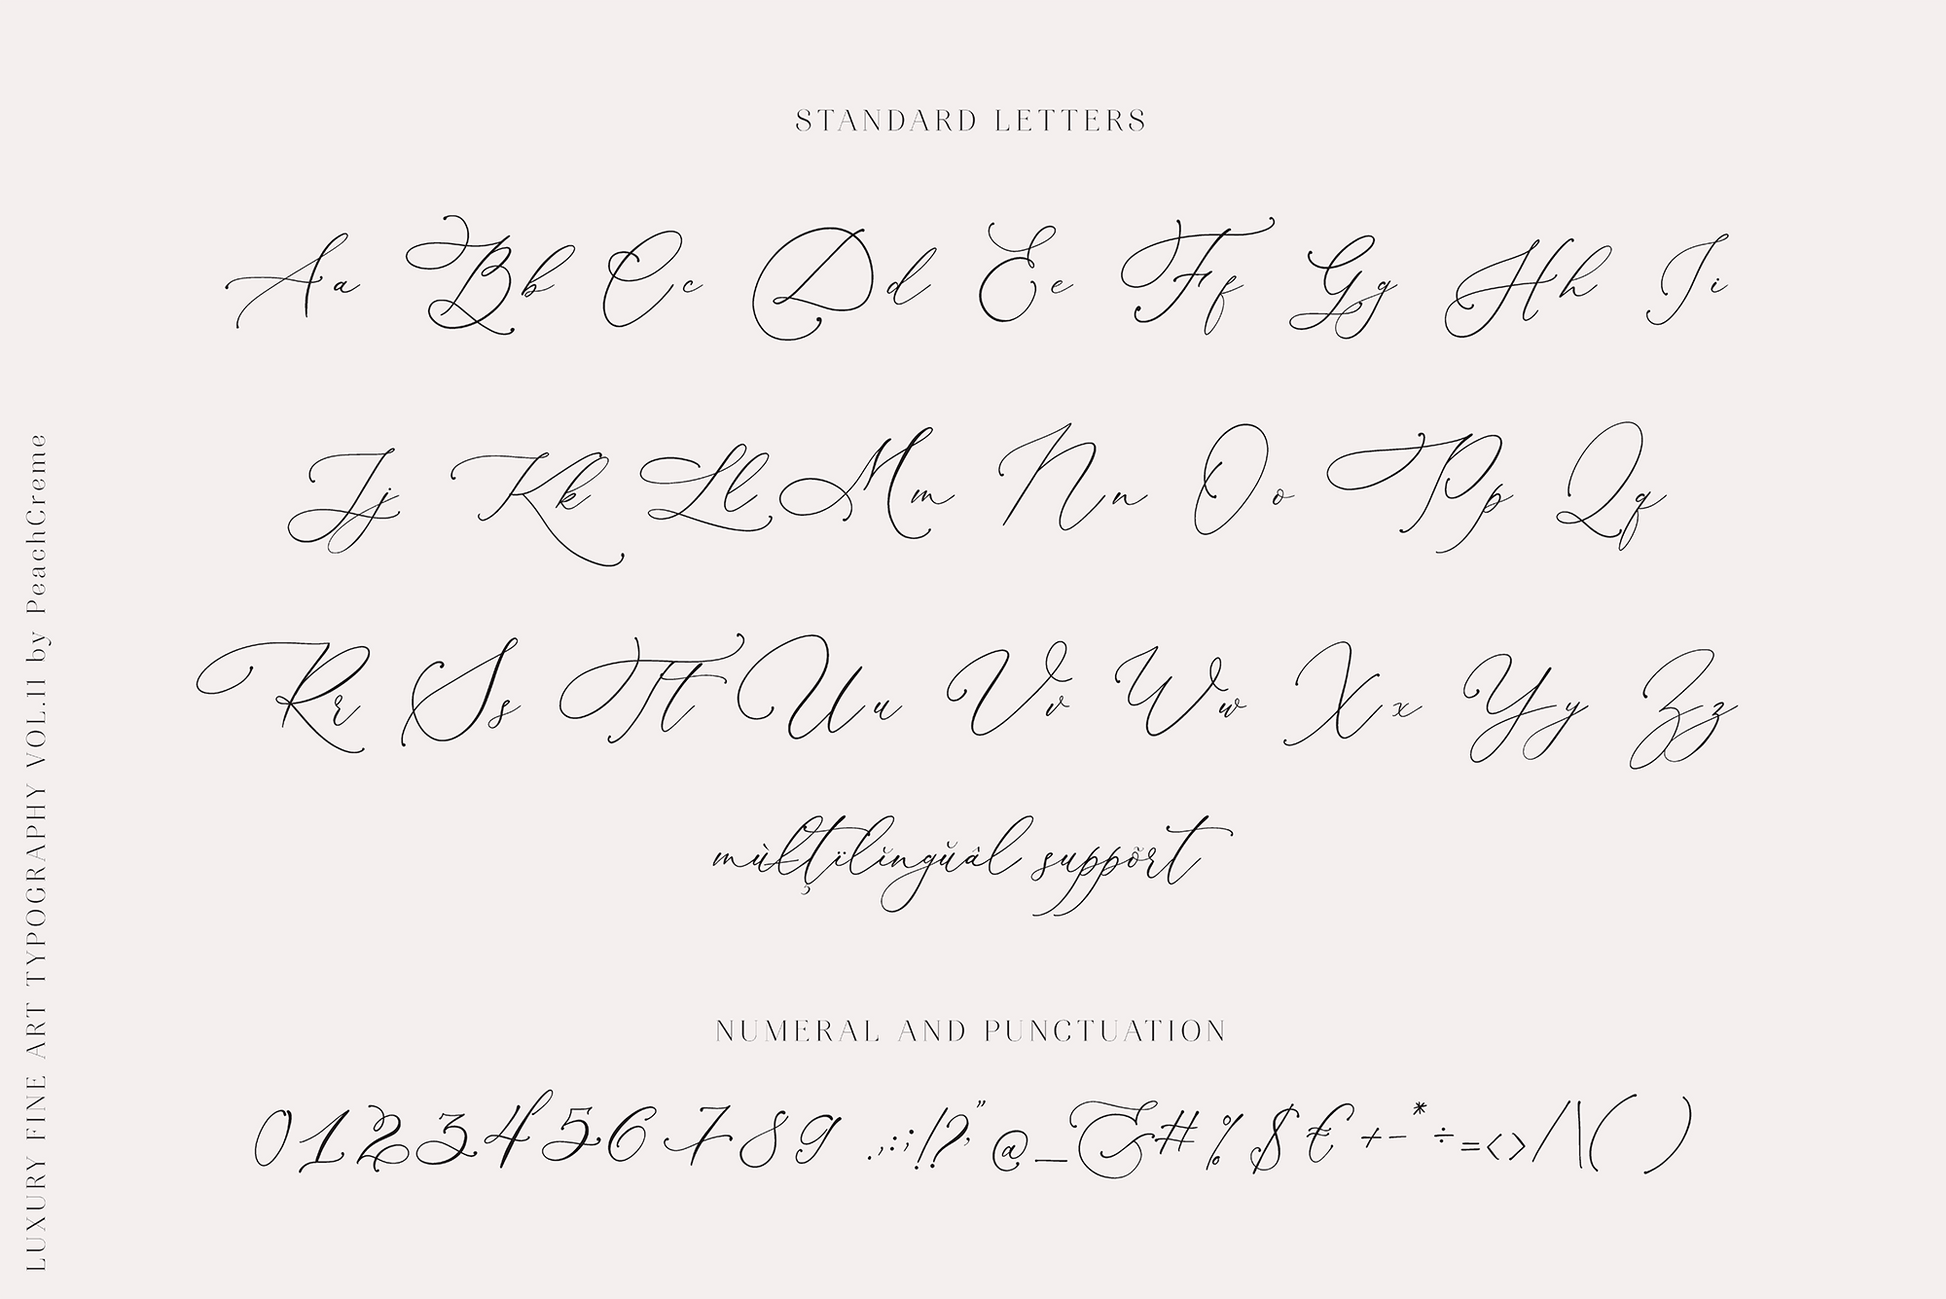 STANDARD LETTERS
Aa Bb Cc Dd Ee Ff Gg Hh Ii
Jj Kk Ll Mm Nn Oo Pp Qq
Rr Ss Tt Uu Vv Ww Xx Yy Zz
mùłţïlĭngŭâl suppõrt
NUMERAL AND PUNCTUATION
0123456789 .,:;!?,” @_&#%$€+-*÷=<>/\( )
LUXURY FINE ART TYPOGRAPHY VOL.II by PeachCreme